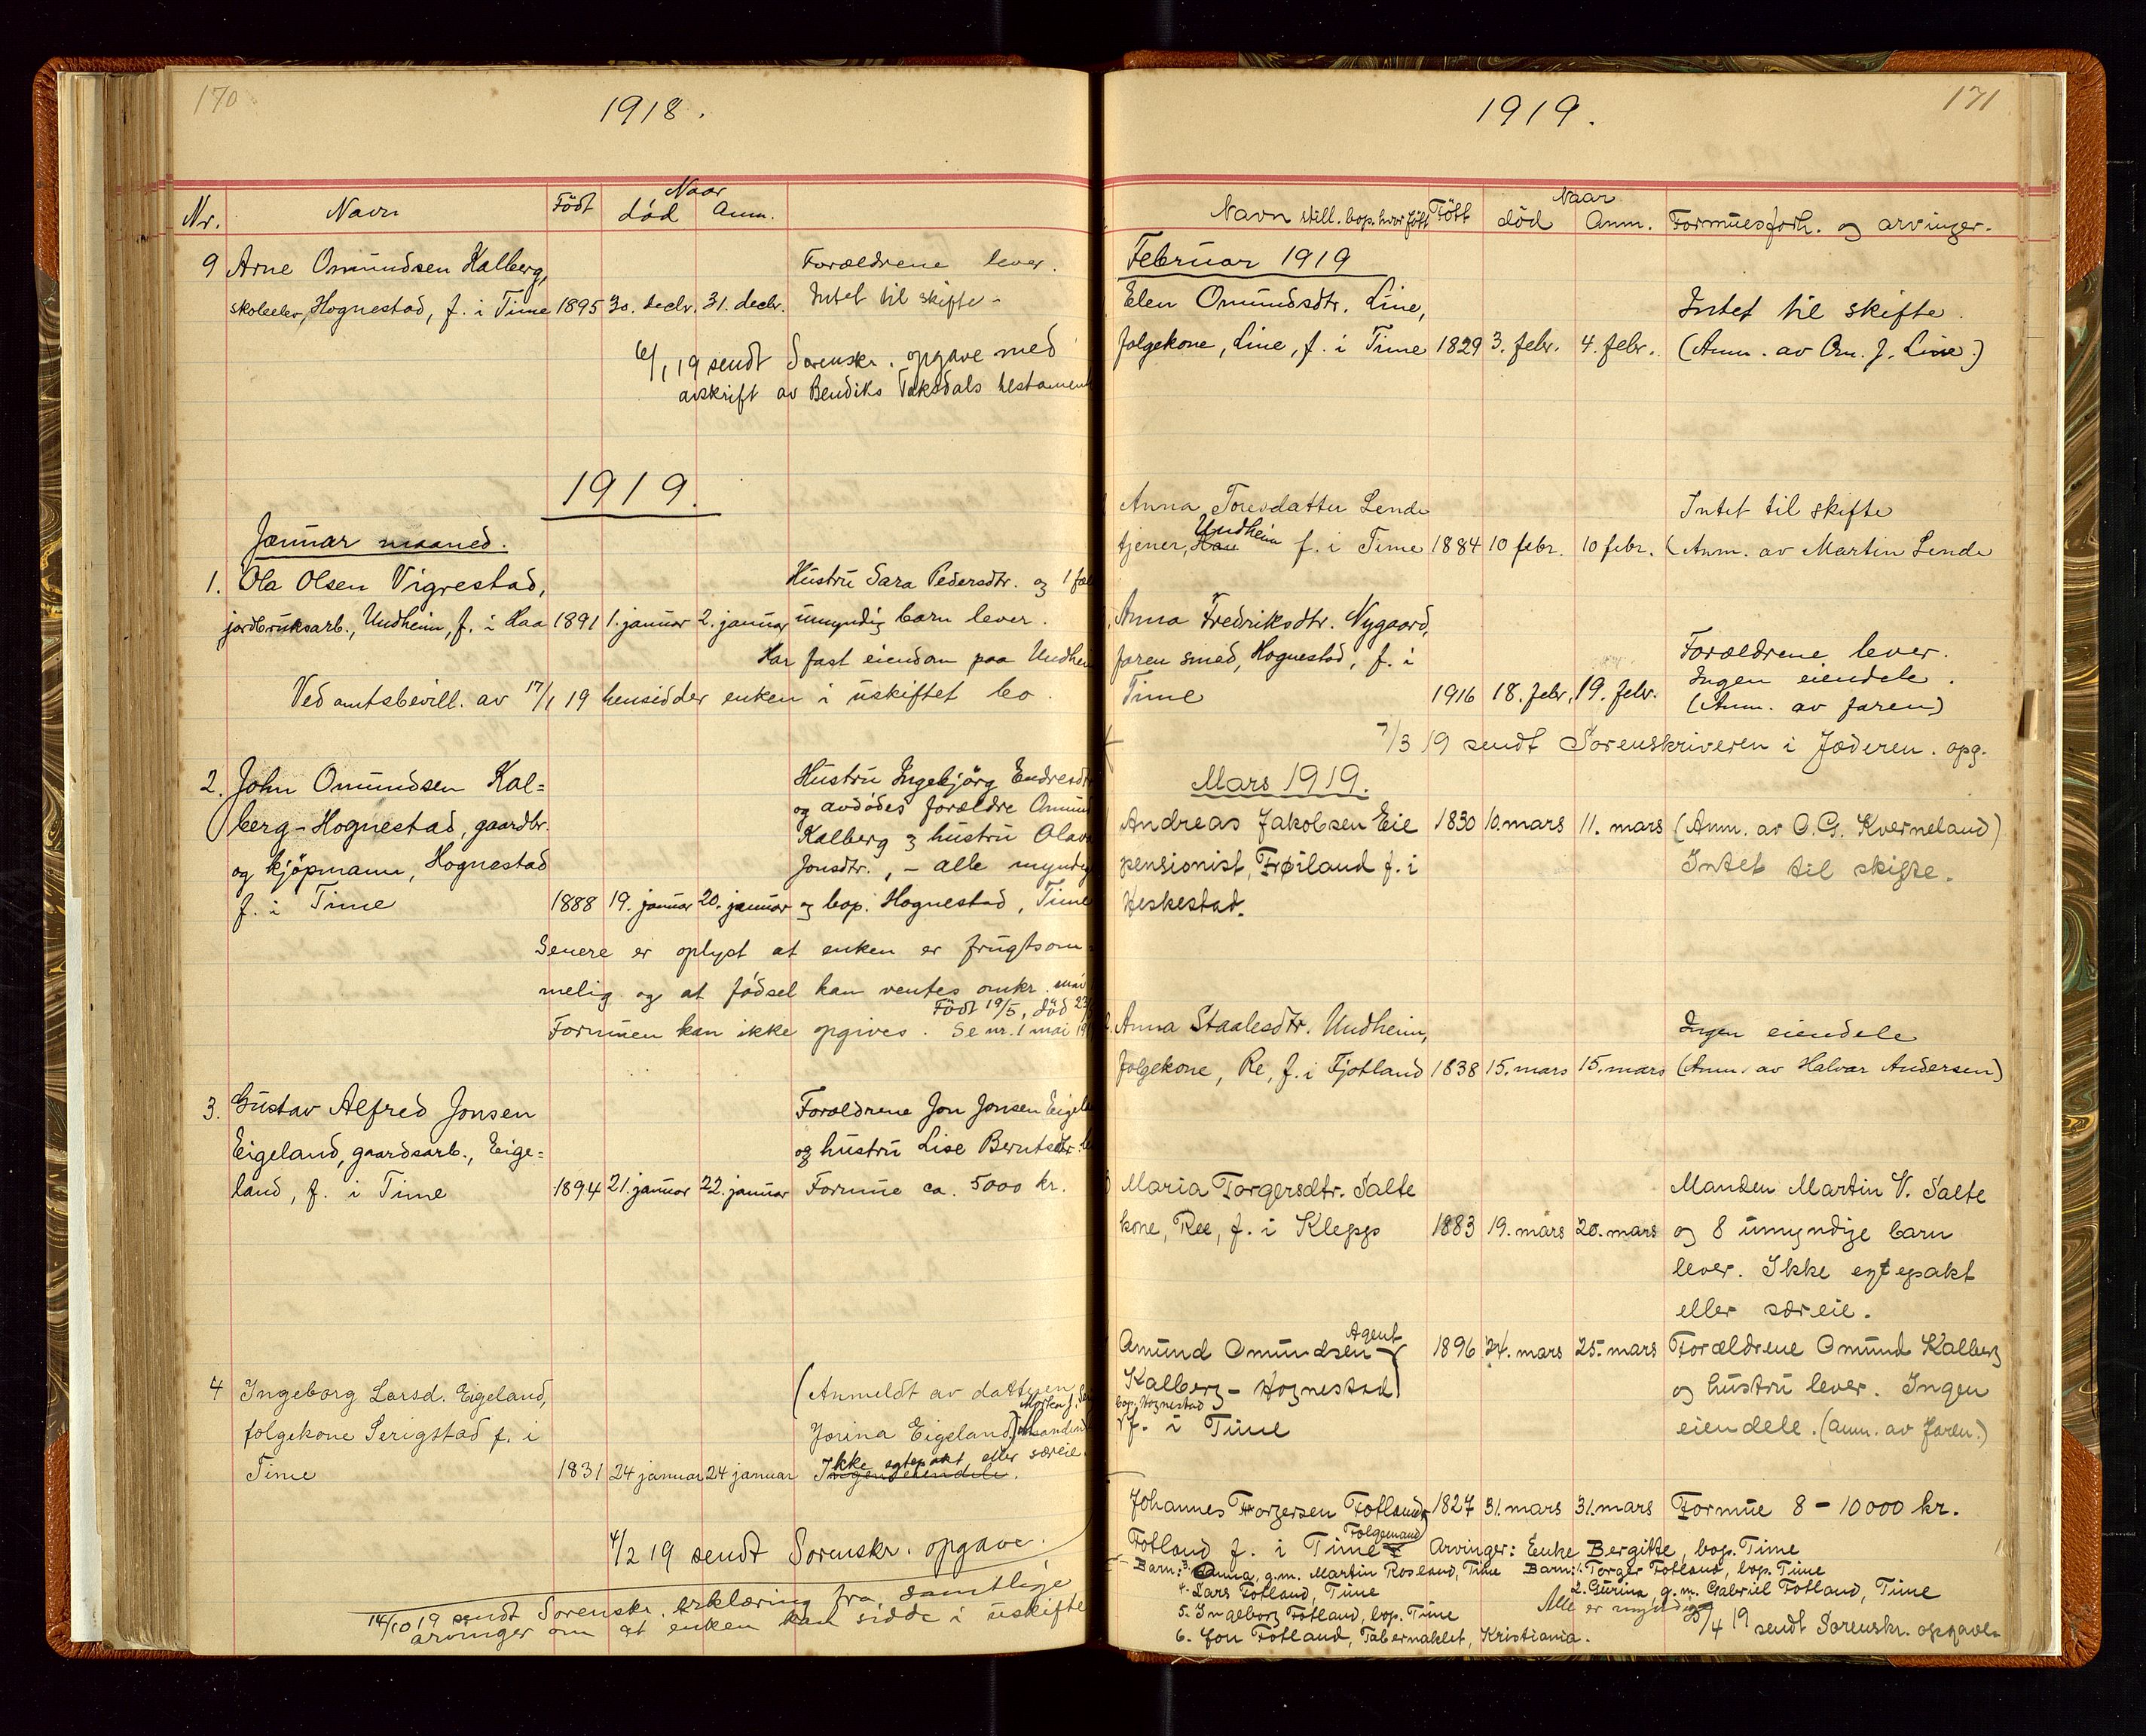 170
1918.
Nr. Navn Født Naar død Anm.
9 Arne Omundsen Kalberg, Forældrene lever.
skoleelev, Hognestad, f. i Time 1895 30. decbr. 31. decbr. Intet til skifte -
6/1 19 sendt Sorenskr. opgave med
avskrift av Bendiks Taksdals testament
1919.
Januar maaned.
1. Ola Olsen Vigrestad, Hustru Sara Pedersdtr. og 1
jordbruksarb., Undheim, f. i Haa 1891 1. januar 2. januar umyndig barn lever.
Har fast eiendom paa Undhe
Ved amtsbevill. av 17/1 19 hensidder enken i uskiftet bo.
2. John Omundsen Kal= Hustru Ingebjørg Endresdt
berg-Hognestad, gaardbr. og avdødes forældre Omund
og kjøpmann, Hognestad Kalberg og hustru Olava
f. i Time Jonsdtr., - alle myndig
1888 19. januar 20. januar og bop. Hognestad, Time
Senere er oplyst at enken er frugtsom=
melig og at fødsel kan ventes omkr. mai
Født 19/5, død 23
Formuen kan ikke opgives. Se nr. 1 mai 19
3. Gustav Alfred Jonsen Forældrene Jon Jonsen Eigel
Eigeland, gaardsarb., Eige= og hustru Lise Berntsdtr.
land, f. i Time 1894 21. januar 22. januar Formue ca. 5000 kr.
4 Ingeborg Larsd. Eigeland, (Anmeldt av datteren
folgekone Serigstad f. i Morten J.
Jorina Eigeland)
Time 1831 24 januar 24 januar Ikke egtepakt eller særeie.
Ingen eiendele.
4/2 19 sendt Sorenskr. opgave.
14/10 19 sendt Sorenskr. erklæring fra samtlige
arvinger om at enken kan sidde i uskifte
171
1919.
Navn still. bop. hvor født Født Naar død Anm. Formuesforh. og arvinger.
Februar 1919
Elen Omundsdtr. Line, Intet til skifte.
folgekone, Line, f. i Time 1829 3. febr. 4. febr. (Anm. av Om. J. Line)
Anna Toresdatter Lende Intet til skifte
Undheim
tjener, Haa f. i Time 1884 10 febr. 10 febr. (Anm. av Martin Lende
Anna Fredriksdtr. Nygaard,
faren smed, Hognestad, f. i Forældrene lever.
Ingen eiendele.
Time 1916 18. febr. 19. febr. (Anm. av faren)
7/3 19 sendt Sorenskriveren i Jæderen. opg.
Mars 1919.
Andreas Jakobsen Eie 1830 10. mars 11. mars (Anm. av O.G. Kverneland)
pensionist, Frøiland f. i Intet til skifte.
Heskestad.
Anna Staalesdtr. Undheim, Ingen eiendele
folgekone, Re, f. i Fjotland 1838 15. mars 15. mars (Anm. av Halvar Andersen)
Maria Torgersdtr. Salte Manden Martin V. Salte
kone, Ree, f. i Klepp 1883 19. mars 20. mars og 8 umyndige barn
lever. Ikke egtepakt
eller særeie.
Agent
Amund Omundsen 1896 24. mars 25. mars Forældrene Omund Kalberg
Kalberg - Hognestad og hustru lever. Ingen
bop. Hognestad
f. i Time eiendele. (anm. av faren.)
Johannes Torgersen Fotland 1827 31. mars 31. mars Formue 8 - 10000 kr.
Folgemand
Fotland f. i Time Arvinger: Enke Bergitte, bop. Time
Barn: 3. Anna, g.m. Martin Rosland, Time Barn: 1. Torger Fotland, bop. Time
4. Lars Fotland, Time 2. Gurina g.m. Gabriel Fotland, Time
5. Ingeborg Fotland, bop. Time Alle er myndige
6. Jon Fotland, Tabernaklet, Kristiania. /4 19 sendt Sorenskr. opgave